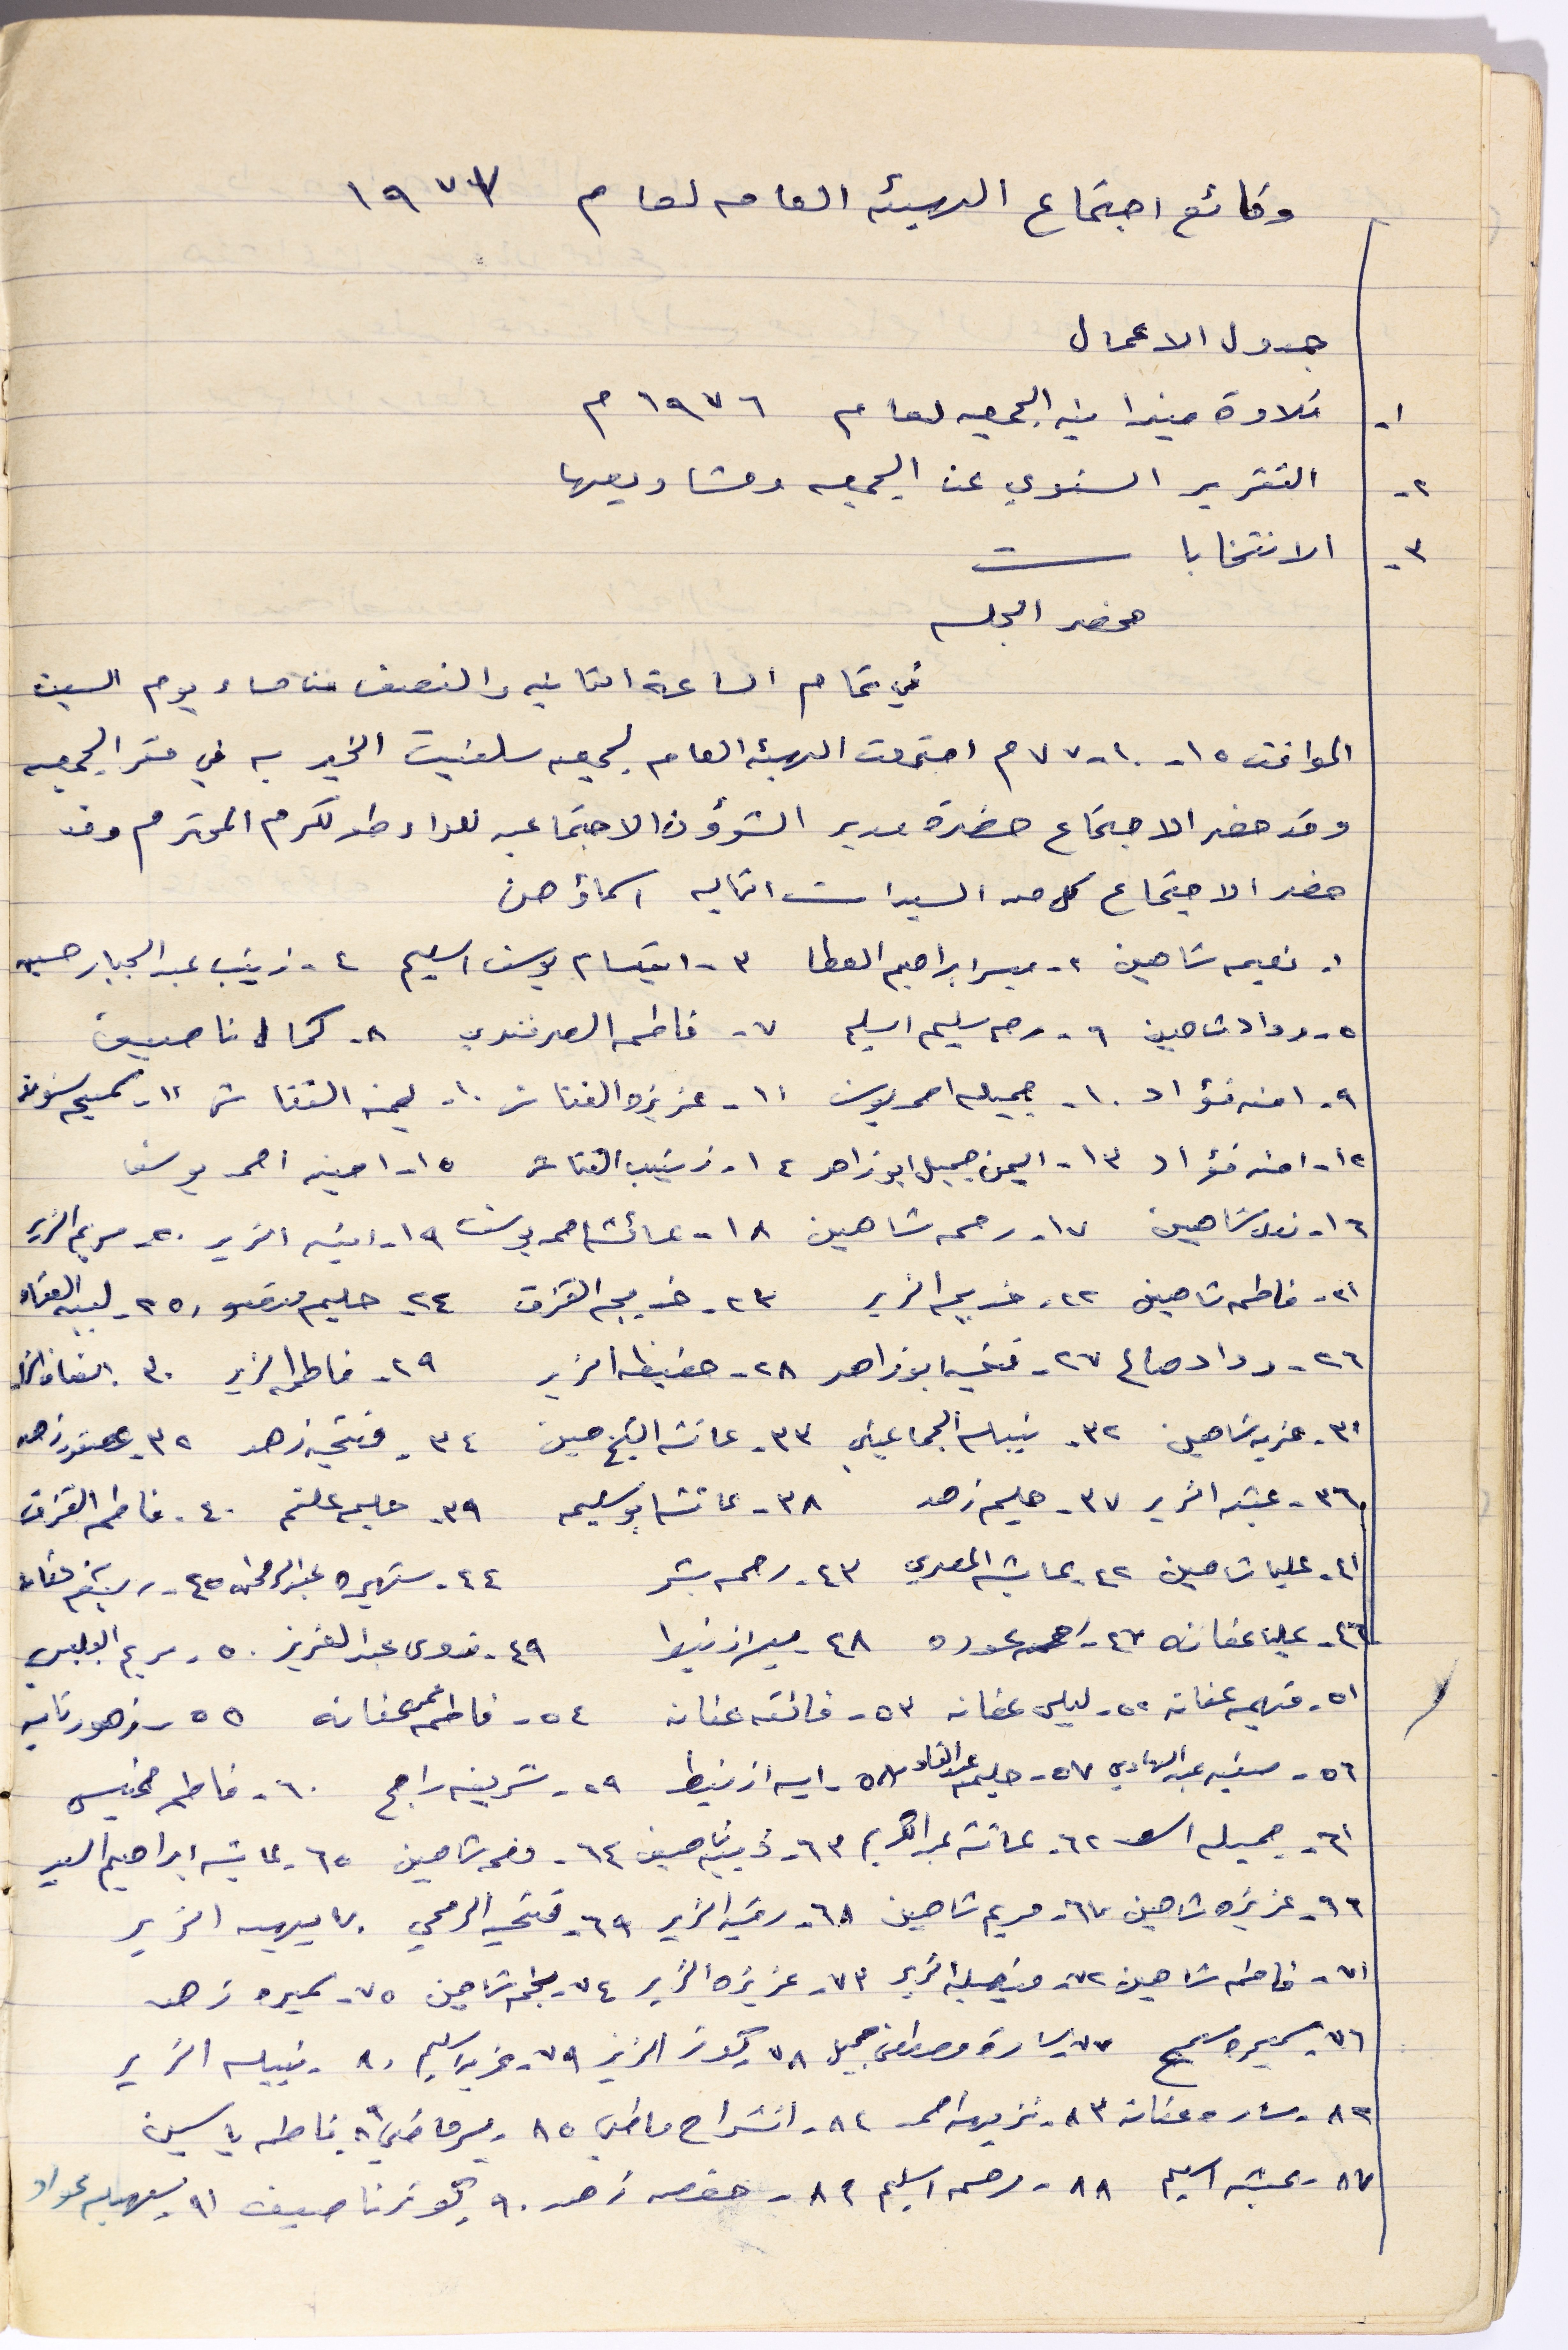 وقائع اجتماع الهيئه العامه لعام ١٩٧٧
جدول الاعمال
١- تلاوة ميزانيه الجمعيه لعام ١٩٧٦ م
٢- التقرير السنوي عن الجمعيه ومشاريعها
٣- الانتخابات
محضر الجلسه
في تمام الساعة الثانيه والنصف من مساء يوم السبت
الموافق ١٥-١٠-٧٧ م اجتمعت الهيئه العامه لجمعيه سلفيت الخيريه في مقر الجمعيه
وقد حضر الاجتماع حضرة مدير الشؤون الاجتماعيه للواء طولكرم المحترم وقد
حضر الاجتماع كل من السيدات التاليه اسماؤهن
١- نعيمه شاهين ٢- ميسر ابراهيم العطا ٣- ابتسام يوسف اسليم ٤- زينب عبد الجبار حسين
٥- وداد شاهين ٦- رحمه سليم اسليم ٧- فاطمه الصرفندي ٨- كمال ناصيف
٩- امنه فؤاد ١٠- جميله احمد يوسف ١١- عزيزه الفتاش ١٠- يمنه الفتاش ١١- سميحه
١٢- امنه فؤاد ١٣- اليمن جميل ابو زاهر ١٤- زينب الفتاش ١٥- امينه احمد يوسف
١٦- شاهين ١٧- رحمه شاهين ١٨- عائشه احمد يوسف ١٩- الزير ٢٠- مريم الزير
٢١- فاطمه شاهين ٢٢- خديجه الزير ٢٣- خديجه القزق ٢٤- حليمه ٢٥-
٢٦- وداد صالح ٢٧- فتحيه ابو زاهر ٢٨- حفيظه الزير ٢٩- فاطمه الزير ٣٠
٣١- عزيه شاهين ٣٢- نبيله الجماعيني ٣٣- عائشه الشيخ حسين ٣٤- فتحيه زهد ٣٢- زهد
٣٦- عيشه الزير ٣٧- حليمه زهد ٣٨- عائشه ابو سليمه ٣٩- حليمه علقم ٤٠- فاطمه القزق
٤١- عليا شاهين ٤٢- عايشه المصري ٤٣- رحمه بشر ٤٤- شهيره عبد الرحمن ٤٥- عفانه
٤٦- عليا عفانه ٤٧- عوده ٤٨- ميسر ازنيط ٤٩- فدوى عبد العزيز ٥٠- مريم
٥١- فهيمه عفانه ٥٢- ليلى عفانه ٥٣- فائقه عفانه ٥٤- فاطمه عفانه ٥٥-
٥٦- صفيه عبد الهادي ٥٧- حليمه عبد القادر ٥٨- ازنيط ٥٩- شريفه راجح ٦٠- فاطمه مخيس
٦١- جميله اسعد ٦٢- عائشه عبد الكريم ٦٣- شاهين ٦٤- شاهين ٦٥- عايشه ابراهيم السيد
٦٦- عزيزه شاهين ٦٧- مريم شاهين ٦٨- رقيه الزير ٦٩- فتحيه الرمحي ٧٠ بهيه الزير
٧١- فاطمه شاهين ٧٢- الزير ٧٣- عزيزه الزير ٧٤- نجمه شاهين ٧٥- سميره زهد
٧٦- سميره سميح ٧٧- ساره مصطفى جميل ٧٨ كوثر الزير ٧٩- اسليم ٨٠- نبيله الزير
٨٢- ساره عفانه ٨٣- نزيهه احمد ٨٤- انشراح ماضي ٨٥- ميسر ماضي ٨٦ فاطمه ياسين
٨٧- عيشه اسليم ٨٨- رحمه اسليم ٨٩- حفصه زهد ٩٠- كوثر ناصيف ٩١- عواد